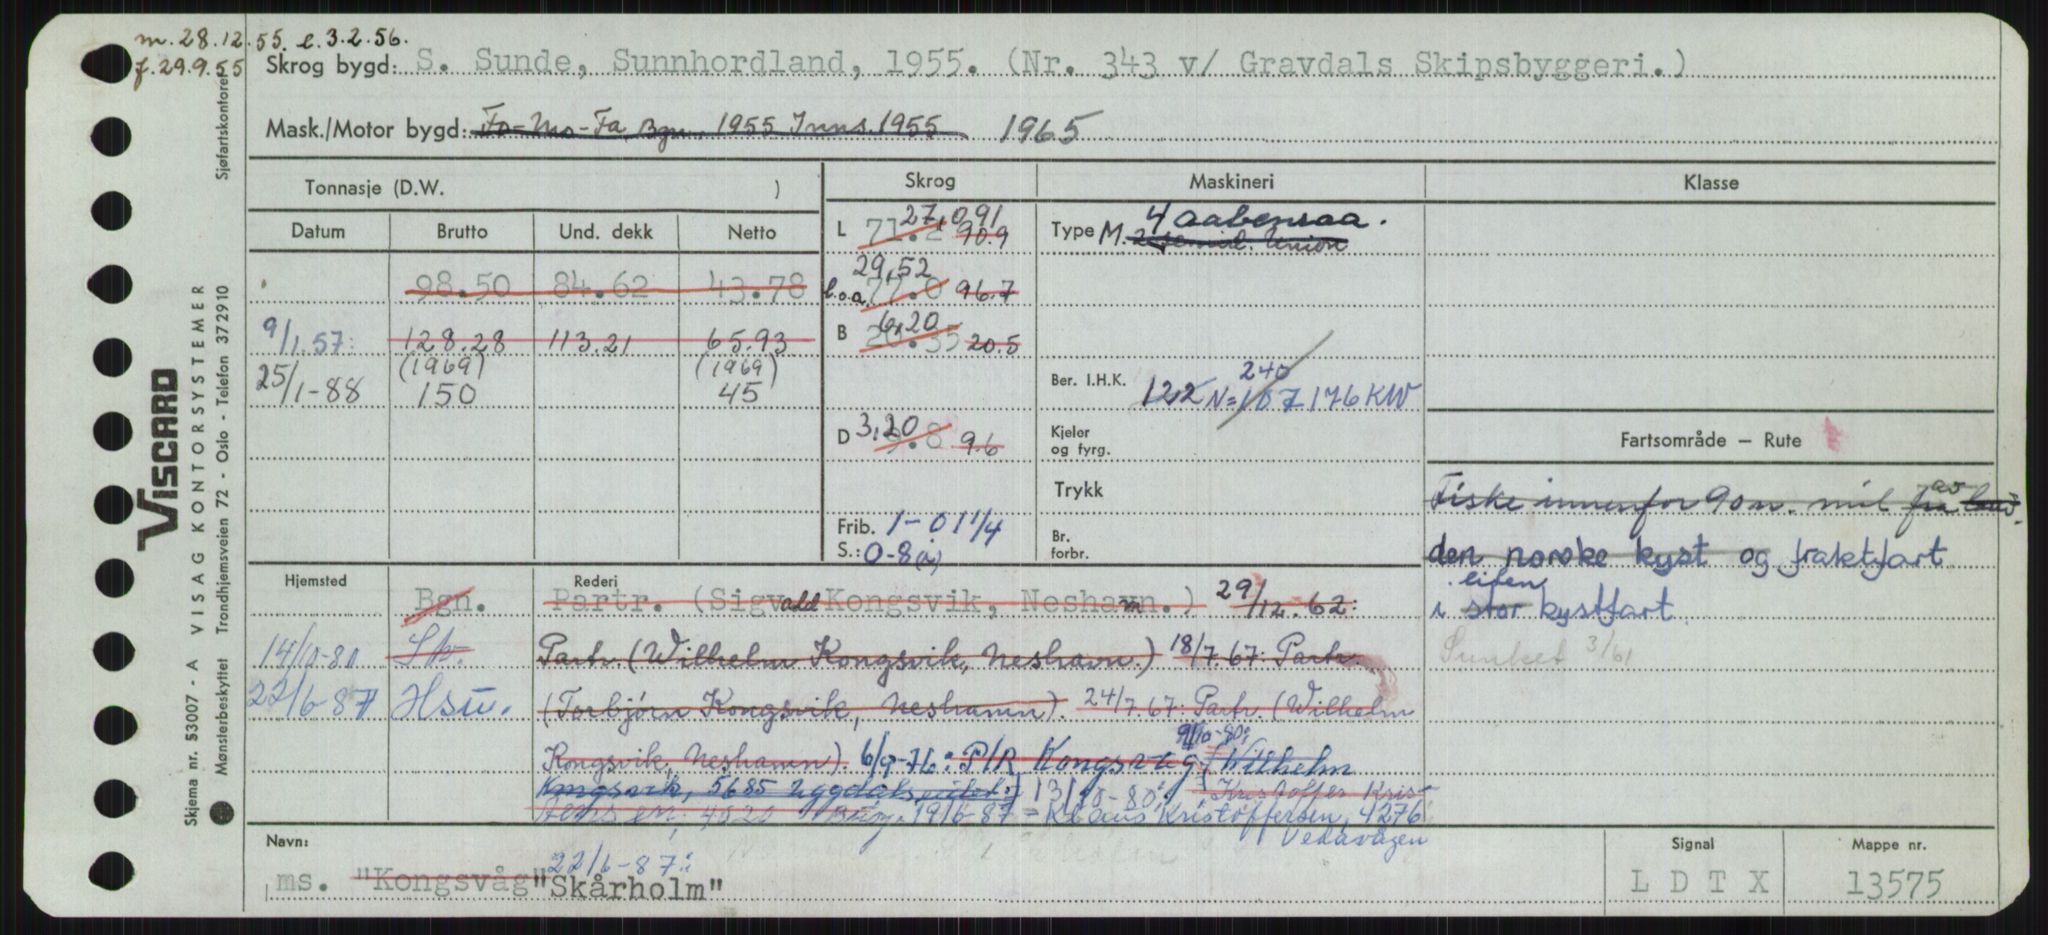 m. 28.12.55. l. 3.2.56.
f. 29.9.55
Skrog bygd: S. Sunde, Sunnhordland, 1955. (Nr. 343 v/ Gravdals Skipsbyggeri.)
Mask./Motor bygd: Fo-Mo-Fa, Bgn. 1955 Inns. 1955 1965
Tonnasje (D.W. )
Skrog
Maskineri
Klasse
Datum Brutto Und. dekk Netto
98.50 84.62 43.78
9/1.57: 128.28 113.21 65.93
(1969) (1969)
25/1-88 150 45
27,091
L 71.2 90.9
29,52
l.o.a. 77.0 96.7
6,20
B 20.35 20.5
D 3,20 9.8 9.6
Frib. 1-01 1/4
S.: 0-8 (a)
4 aabenraa.
Type M. 2 Union
240
Ber. I.H.K. 122 N=187 176 KW
Kjeler
og fyrg.
Trykk
Br.
forbr.
Fartsområde – Rute
Fiske innenfor 90 n. mil fra av land.
den norske kyst og fraktfart
liten
i stor kystfart.
Sunket 3/61
Hjemsted
Rederi
Bgn. Partr. (Sigvald Kongsvik, Neshamn.) 29/12.62:
14/10-80 Partr. (Wilhelm Kongsvik, Neshavn.) 18/7.67: Partr.
22/6-87 Hsu. (Torbjørn Kongsvik, Neshamn). 24/7.67: Partr. (Wilhelm
Kongsvik, Neshamn). 6/9-76: P/R Kongsvåg (Wilhelm
9/10-80:
Kongsvik, 5685 Uggdalseidet.) 13/10-80: Kristoffer Kris-
4020 19/6-87 = Klaus Kristoffersen, 4276
Vedavågen
Navn:
22/6-87:
ms. "Kongsvåg" "Skårholm"
Signal
L D T X
Mappe nr.
13575
VISCARD
VISAG KONTORSYSTEMER
Skjema nr. 53007 - A
Mønsterbeskyttet Trondhjemsveien 72 - Oslo - Telefon 372910
Sjøfartskontoret